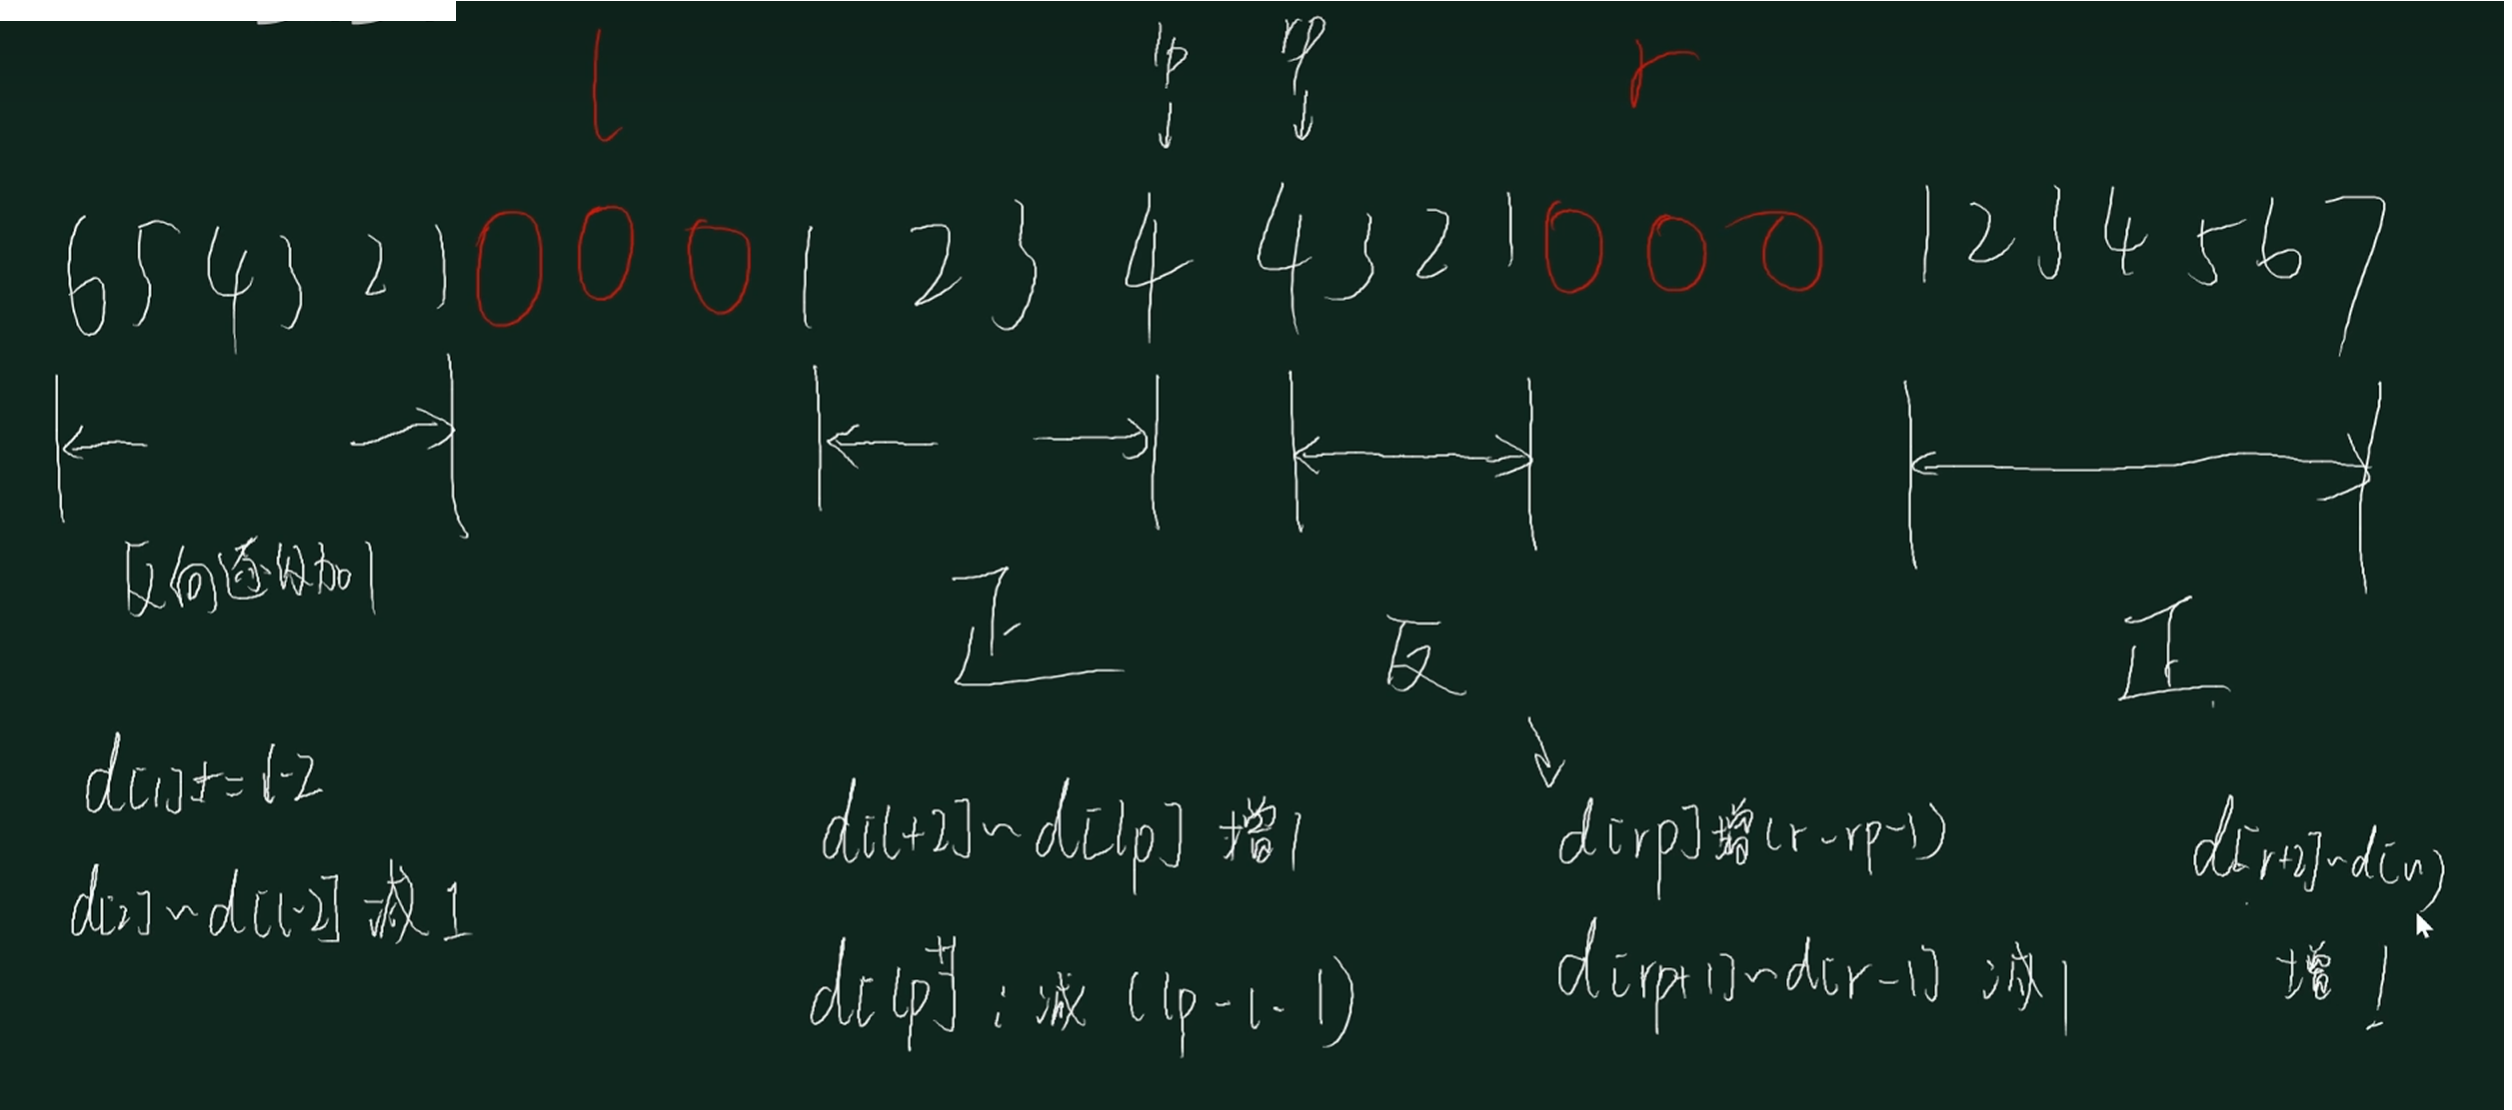 l lp rp r
6 5 4 3 2 1 0 0 0 1 2 3 4 4 3 2 1 0 0 0 1 2 3 4 5 6 7
反向逐个加1
正 反 正
d[1]+=l-2
d[2]~d[l-2] 减1
d[l+2]~d[lp] 增1
d[lp+1]: 减 (lp-l-1)
d[rp]增(r-rp-1)
d[rp+1]~d[r-1] 减1
d[r+2]~d[n]
增1